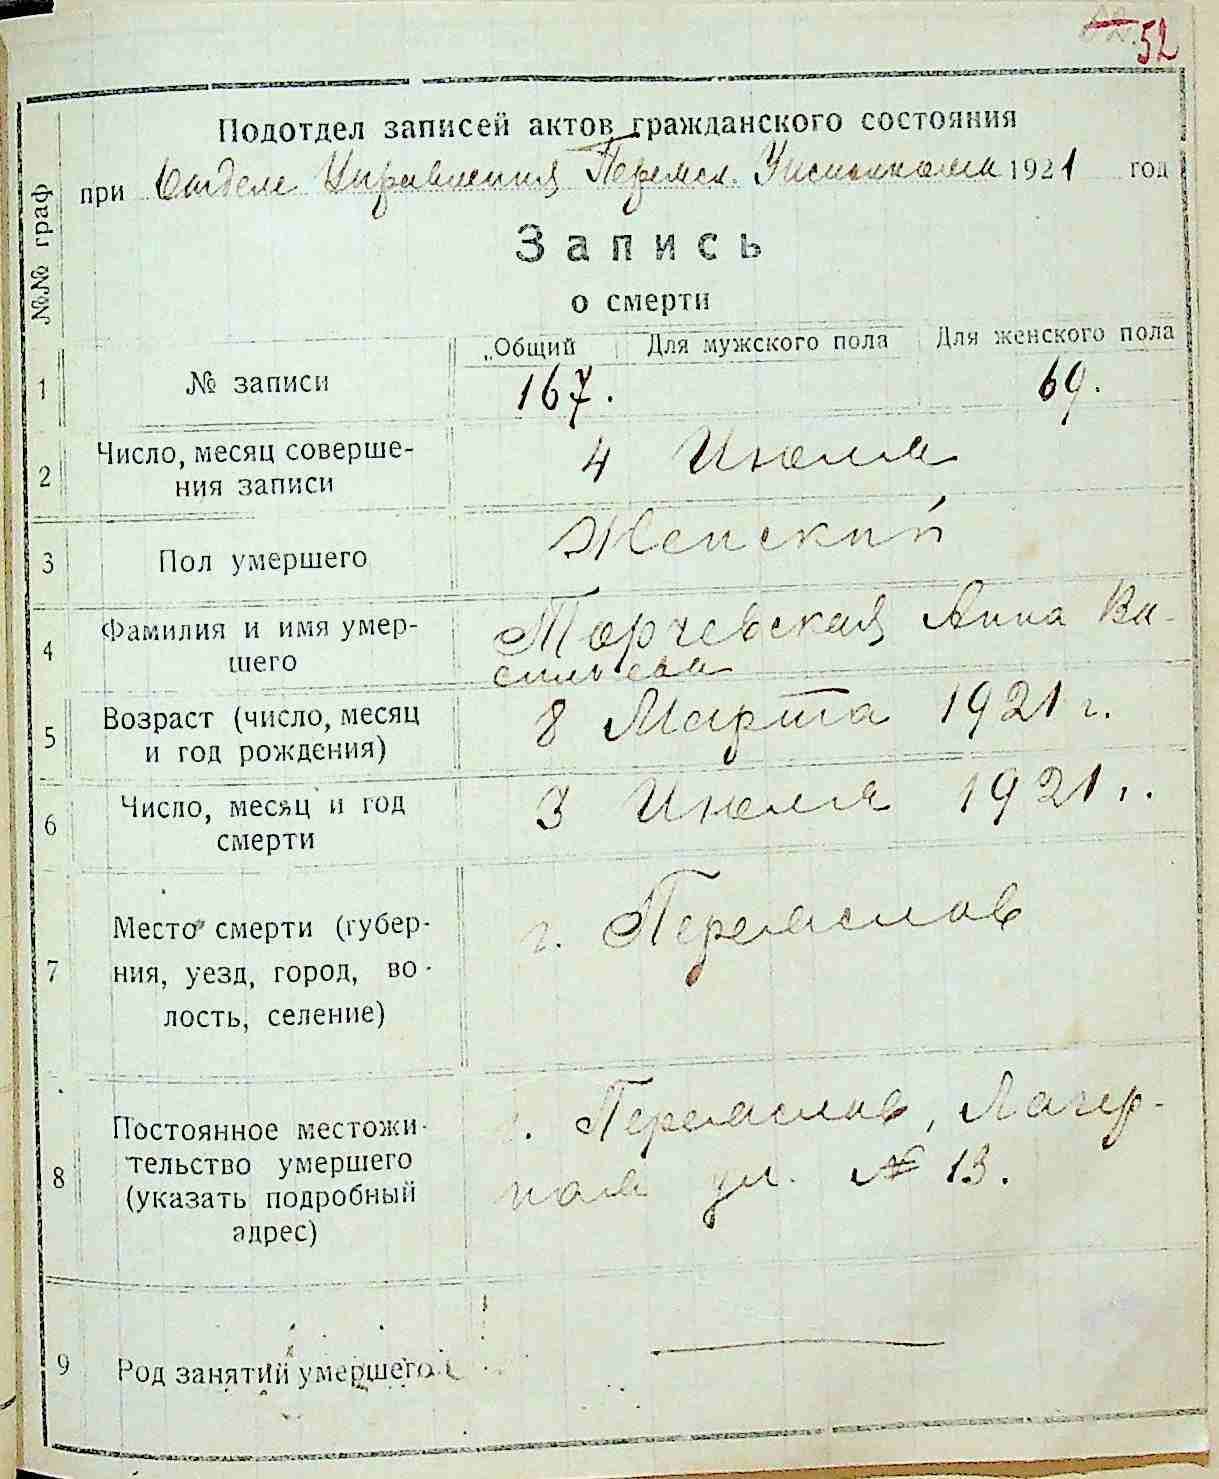 52
Подотдел записей актов гражданского состояния
при Отделе Управления Перемсл. Уисполкома 1921 год
Запись
о смерти
№№ граф
„Общий Для мужского пола Для женского пола
1 № записи 167. 69.
2 Число, месяц соверше-
ния записи
4 Июля
3 Пол умершего Женский
4 Фамилия и имя умер-
шего
Торчевская Анна Ва-
сильева
5 Возраст (число, месяц
и год рождения)
8 Марта 1921 г.
6 Число, месяц и год
смерти
3 Июля 1921 г.
7 Место смерти (губер-
ния, уезд, город, во-
лость, селение)
г. Перемаслав
8 Постоянное местожи-
тельство умершего
(указать подробный
адрес)
г. Перемаслав, Лагер-
ная ул. № 13.
9 Род занятий умершего